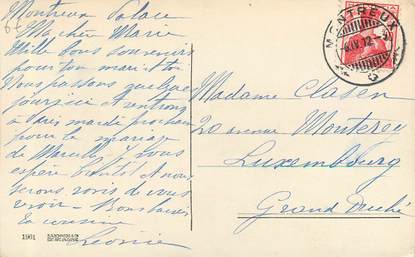 Montreux Palace
Ma chère Marie
Mille bons souvenirs
pour ton mari & toi
Nous passons quelques
jours ici & rentrons
à Paris mardi prochain
pour le mariage
de Marcelle
espère & nous
serons ravis de vous
voir — Bons baisers
ta cousine
Léonie
MONTREUX
Madame Clasen
20 avenue Monterey
Luxembourg
Grand Duché
1901